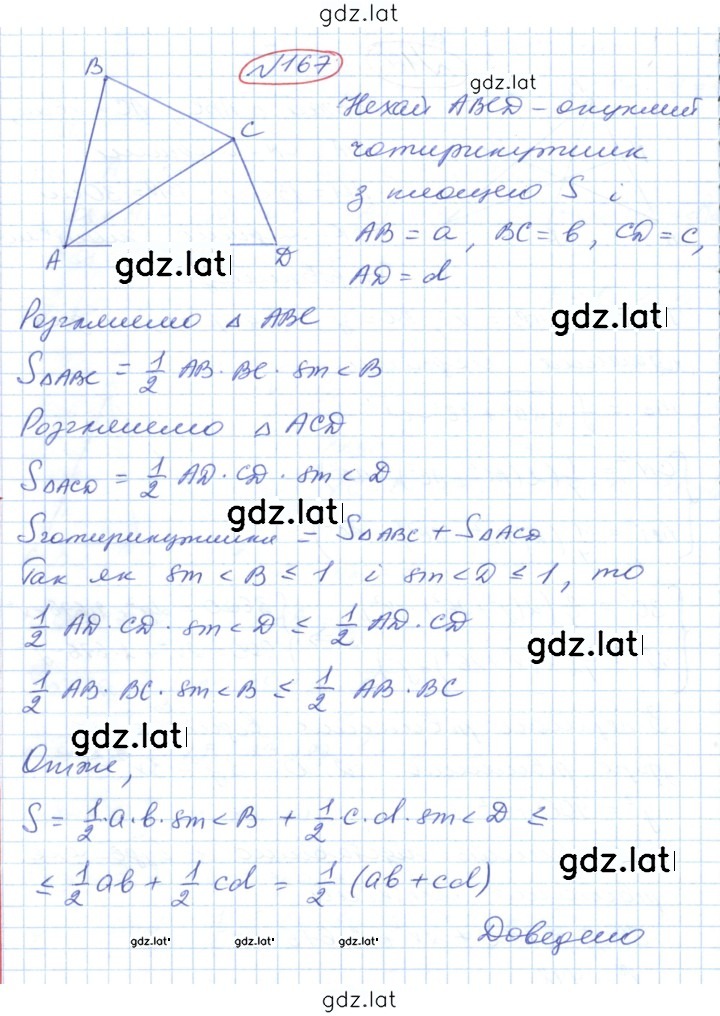 gdz.lat
№167
gdz.lat
B
C
A
D
Нехай ABCD - опуклий
чотирикутник
з площею S і
AB = a, BC = b, CD = c,
AD = d
gdz.lat
gdz.lat
Розглянемо △ ABC
S△ABC = 1/2 AB · BC · sin < B
Розглянемо △ ACD
S△ACD = 1/2 AD · CD · sin < D
gdz.lat
Sчотирикутника = S△ABC + S△ACD
Так як sin < B ≤ 1 і sin < D ≤ 1, то
1/2 AD · CD · sin < D ≤ 1/2 AD · CD
gdz.lat
1/2 AB · BC · sin < B ≤ 1/2 AB · BC
gdz.lat
Отже,
S = 1/2 · a · b · sin < B + 1/2 · c · d · sin < D ≤
gdz.lat
≤ 1/2 ab + 1/2 cd = 1/2 (ab + cd)
Доведено
gdz.lat gdz.lat gdz.lat
gdz.lat